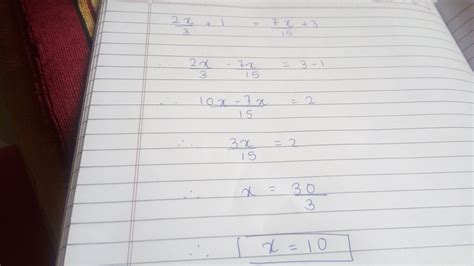 2x/3 + 1 = 7x/15 + 3
∴ 2x/3 - 7x/15 = 3-1
∴ 10x-7x/15 = 2
∴ 3x/15 = 2
∴ x = 30/3
∴ x = 10